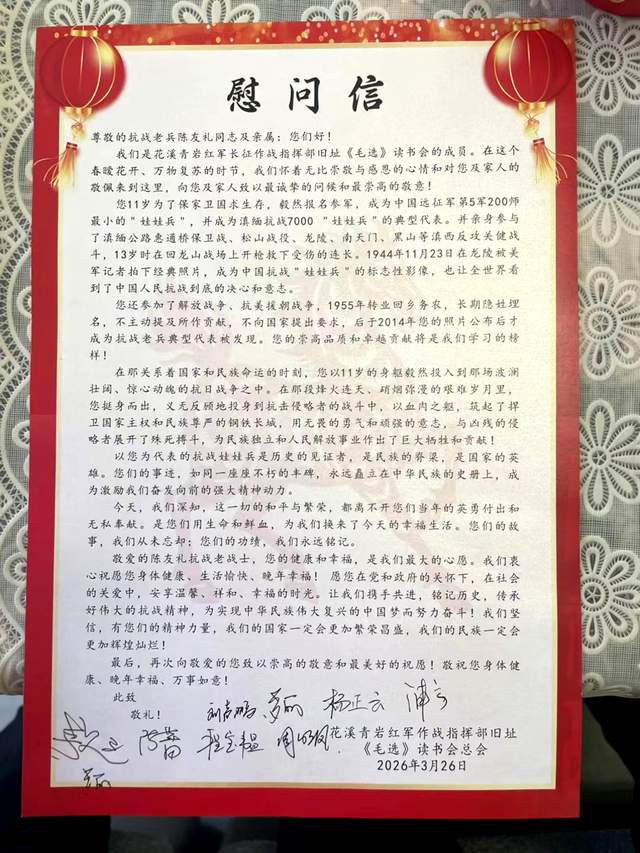 慰问信
尊敬的抗战老兵陈友礼同志及亲属：您们好！
我们是花溪青岩红军长征作战指挥部旧址《毛选》读书会的成员。在这个
春暖花开、万物复苏的时节，我们怀着无比崇敬与感恩的心情和对您及家人的
敬佩来到这里，向您及家人致以最诚挚的问候和最崇高的敬意！
您11岁为了保家卫国求生存，毅然报名参军，成为中国远征军第5军200师
最小的“娃娃兵”，并成为滇缅抗战7000 “娃娃兵”的典型代表。并亲身参与
了滇缅公路惠通桥保卫战、松山战役、龙陵、南天门、黑山等滇西反攻关健战
斗，13岁时在回龙山战场上开枪救下受伤的连长。1944年11月23日在龙陵被美
军记者拍下经典照片，成为中国抗战“娃娃兵”的标志性影像，也让全世界看
到了中国人民抗战到底的决心和意志。
您还参加了解放战争、抗美援朝战争，1955年转业回乡务农，长期隐姓埋
名，不主动提及所作贡献，不向国家提出要求，后于2014年您的照片公布后才
成为抗战老兵典型代表被发现。您的崇高品质和卓越贡献将是我们学习的榜
样！
在那关系着国家和民族命运的时刻，您以11岁的身躯毅然投入到那场波澜
壮阔、惊心动魄的抗日战争之中。在那段烽火连天、硝烟弥漫的艰难岁月里，
您挺身而出，义无反顾地投身到抗击侵略者的战斗中，以血肉之躯，筑起了捍
卫国家主权和民族尊严的钢铁长城，用无畏的勇气和顽强的意志，与凶残的侵
略者展开了殊死搏斗，为民族独立和人民解放事业作出了巨大牺牲和贡献！
以您为代表的抗战娃娃兵是历史的见证者，是民族的脊梁，是国家的英
雄。您们的事迹，如同一座座不朽的丰碑，永远矗立在中华民族的史册上，成
为激励我们奋发向前的强大精神动力。
今天，我们深知，这一切的和平与繁荣，都离不开您们当年的英勇付出和
无私奉献。是您们用生命和鲜血，为我们换来了今天的幸福生活。您们的故
事，我们从未忘却；您们的功绩，我们永远铭记。
敬爱的陈友礼抗战老战士，您的健康和幸福，是我们最大的心愿。我们衷
心祝愿您身体健康、生活愉快、晚年幸福！ 愿您在党和政府的关怀下，在社会
的关爱中，安享温馨、祥和、幸福的时光。让我们携手共进，铭记历史，传承
好伟大的抗战精神，为实现中华民族伟大复兴的中国梦而努力奋斗！我们坚
信，有您们的精神力量，我们的国家一定会更加繁荣昌盛，我们的民族一定会
更加辉煌灿烂！
最后，再次向敬爱的您致以崇高的敬意和最美好的祝愿！敬祝您身体健
康、晚年幸福、万事如意！
此致
敬礼！
杨正云
花溪青岩红军作战指挥部旧址
《毛选》读书会总会
2026年3月26日